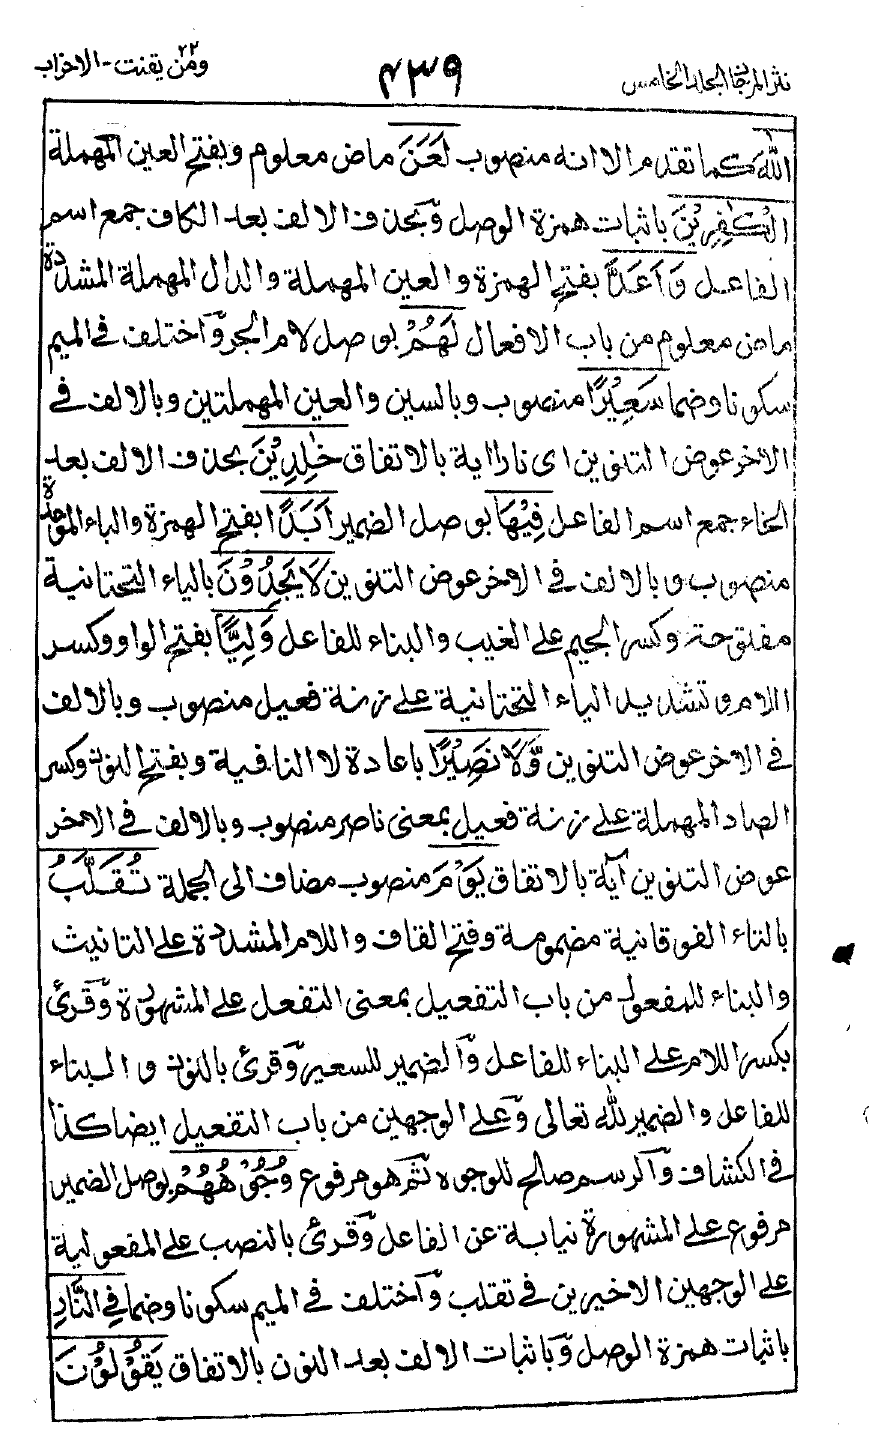 نثر المرجان المجلد الخامس
٤٣٩
ومن يقنت ٢٢ - الاحزاب
اللهَ كما تقدم الا انه منصوب لَعَنَ ماض معلوم وبفتح العين المهملة
الْكٰفِرِيْنَ باثبات همزة الوصل وبحذف الالف بعد الكاف جمع اسم
الفاعل وَاَعَدَّ بفتح الهمزة والعين المهملة والدال المهملة المشددة
ماض معلوم من باب الافعال لَهُمْ بوصل لام الجر واختلف في الميم
سكونا وضما سَعِيْرًا منصوب وبالسين والعين المهملتين وبالالف في
الاخر عوض التنوين اى نارا اية بالاتفاق خٰلِدِيْنَ بحذف الالف بعد
الخاء جمع اسم الفاعل فِيْهَا بوصل الضمير اَبَدًا بفتح الهمزة والباء الموحدة
منصوب وبالالف في الاخر عوض التنوين لَا يَجِدُوْنَ بالياء التحتانية
مفتوحة وكسر الجيم على الغيب والبناء للفاعل وَلِيًّا بفتح الواو وكسر
اللام وتشديد الياء التحتانية على زنة فعيل منصوب وبالالف
في الاخر عوض التنوين وَّلَا نَصِيْرًا باعادة لا النافية وبفتح النون وكسر
الصاد المهملة على زنة فعيل بمعنى ناصر منصوب وبالالف في الاخر
عوض التنوين آية بالاتفاق يَوْمَ منصوب مضاف الى الجملة تُقَلَّبُ
بالتاء الفوقانية مضمومة وفتح القاف واللام المشددة على التانيث
والبناء للمفعول من باب التفعيل بمعنى التفعل على المشهورة وقرئ
بكسر اللام على البناء للفاعل والضمير للسعير وقرئ بالنون والبناء
للفاعل والضمير لله تعالى وعلى الوجهين من باب التفعيل ايضا كذا
في الكشاف والرسم صالح للوجوه ثم هو مرفوع وُجُوْهُهُمْ بوصل الضمير
مرفوع على المشهورة نيابة عن الفاعل وقرئ بالنصب على المفعولية
على الوجهين الاخيرين في تقلب واختلف في الميم سكونا وضما فِى النَّارِ
باثبات همزة الوصل وباثبات الالف بعد النون بالاتفاق يَقُوْلُوْنَ